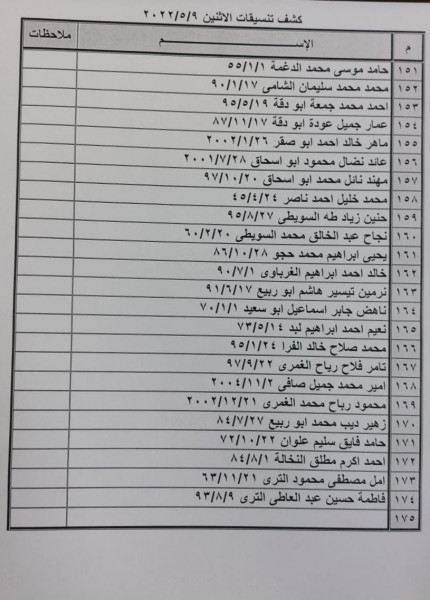 كشف تنسيقات الاثنين ٢٠٢٢/٥/٩
م الإســـم ملاحظات
١٥١ حامد موسى محمد الدغمة ٥٥/١/١
١٥٢ محمد محمد سليمان الشامى ٩٠/١/١٧
١٥٣ احمد محمد جمعة ابو دقة ٩٥/٥/١٩
١٥٤ عمار جميل عودة ابو دقة ٨٧/١١/١٧
١٥٥ ماهر خالد احمد ابو صقر ٢٠٠٢/١/٢٦
١٥٦ عائد نضال محمود ابو اسحاق ٢٠٠١/٧/٢٨
١٥٧ مهند نائل محمد ابو اسحاق ٩٧/١٠/٢٠
١٥٨ محمد خليل احمد ناصر ٤٥/٤/٢٤
١٥٩ حنين زياد طه السويطى ٩٥/٨/٢٧
١٦٠ نجاح عبد الخالق محمد السويطى ٦٠/٢/٢٠
١٦١ يحيى ابراهيم محمد حجو ٨٦/١٠/٢٨
١٦٢ خالد احمد ابراهيم الغرباوى ٩٠/٧/١
١٦٣ نرمين تيسير هاشم ابو ربيع ٩١/٦/١٧
١٦٤ ناهض جابر اسماعيل ابو سعيد ٧٠/١/١
١٦٥ نعيم احمد ابراهيم لبد ٧٣/٥/١٤
١٦٦ محمد صلاح خالد الفرا ٩٥/١/٢٤
١٦٧ تامر فلاح رباح الغمرى ٩٧/٩/٢٢
١٦٨ امير محمد جميل صافى ٢٠٠٤/١١/٢
١٦٩ محمود رباح محمد الغمرى ٢٠٠٢/١٢/٢١
١٧٠ زهير ديب محمد ابو ربيع ٨٤/٧/٢٧
١٧١ حامد فايق سليم علوان ٧٢/١٠/٢٢
١٧٢ احمد اكرم مطلق النخالة ٨٤/٨/١
١٧٣ امل مصطفى محمود الترى ٦٣/١١/٢١
١٧٤ فاطمة حسين عبد العاطى الترى ٩٣/٨/٩
١٧٥